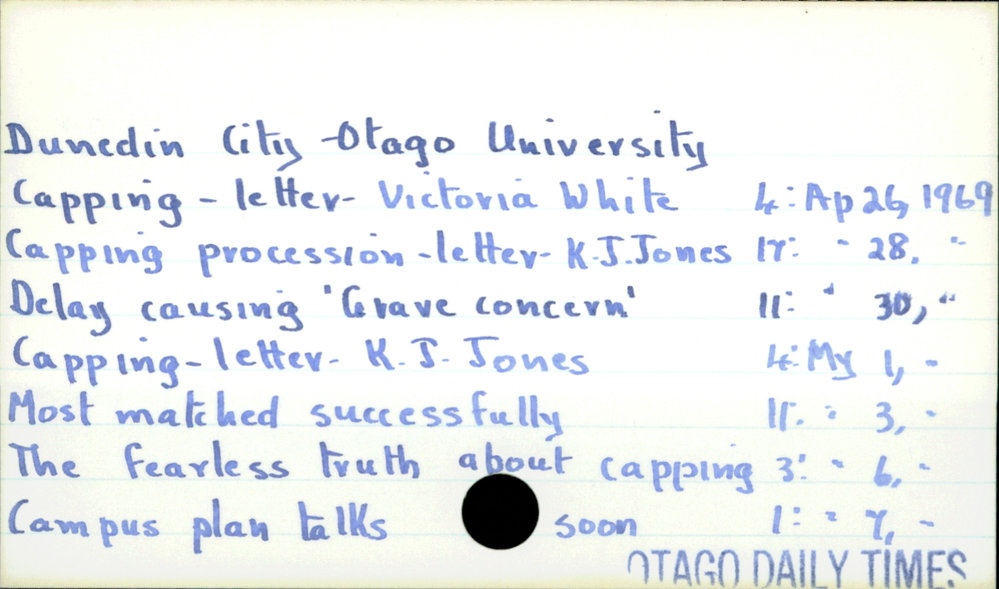 Dunedin City - Otago University
Capping - letter - Victoria White 4: Ap 26, 1969
Capping procession - letter - K.J. Jones 17: " 28, "
Delay causing 'Grave concern' 11: " 30, "
Capping - letter - K. J. Jones 4: My 1, "
Most matched successfully 11: " 3, "
The fearless truth about capping 3: " 6, "
Campus plan talks soon 1: " 7, "
OTAGO DAILY TIMES